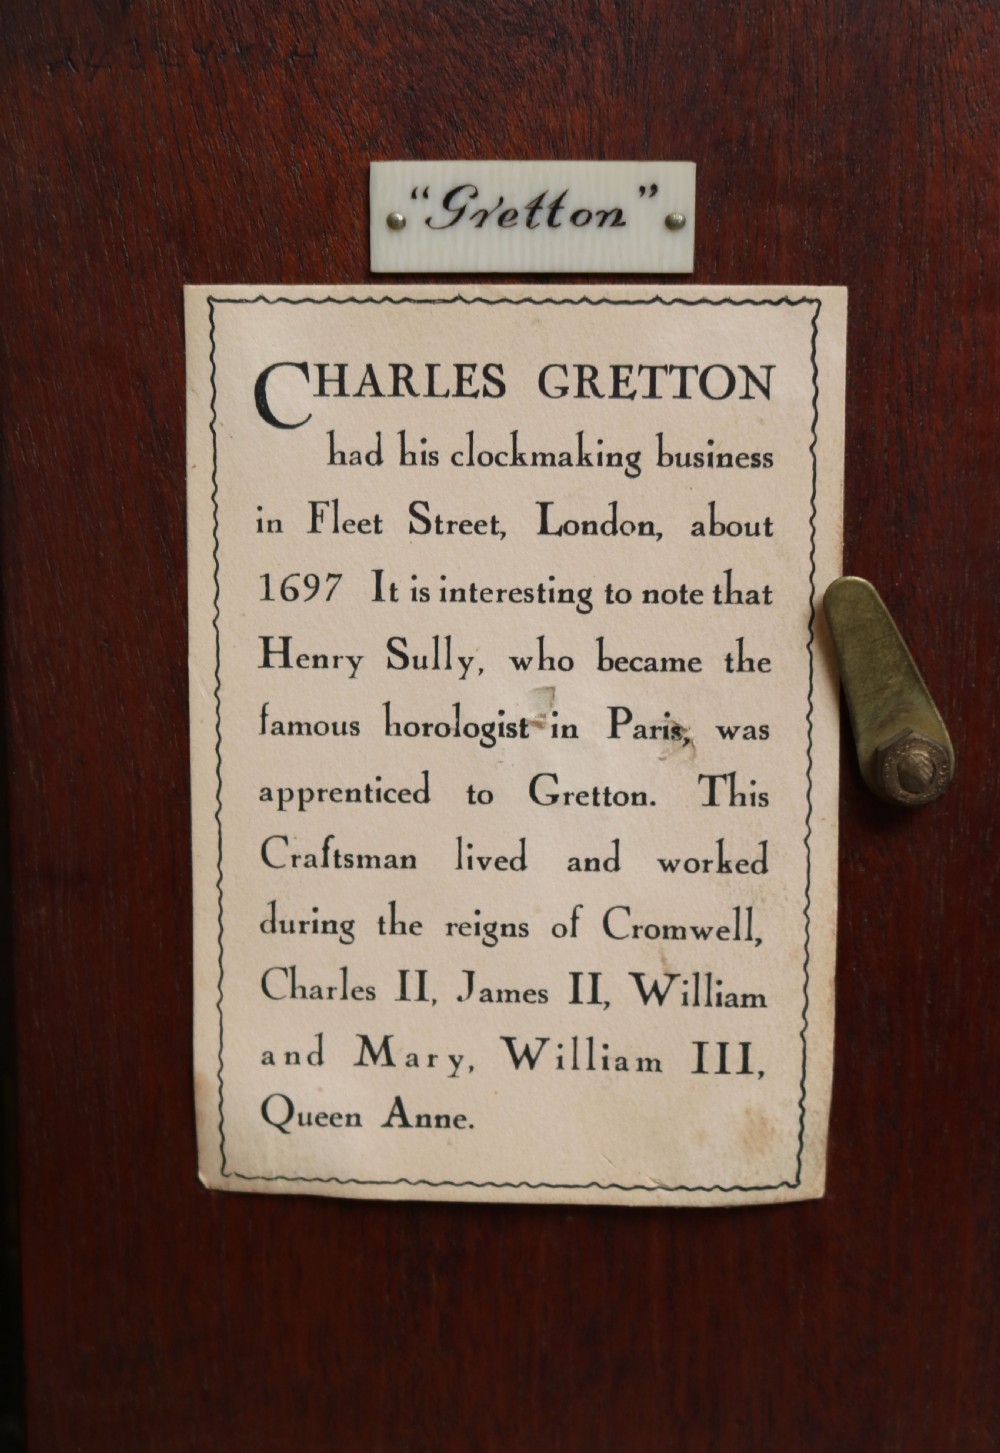 "Gretton"
CHARLES GRETTON
had his clockmaking business
in Fleet Street, London, about
1697 It is interesting to note that
Henry Sully, who became the
famous horologist in Paris, was
apprenticed to Gretton. This
Craftsman lived and worked
during the reigns of Cromwell,
Charles II, James II, William
and Mary, William III,
Queen Anne.